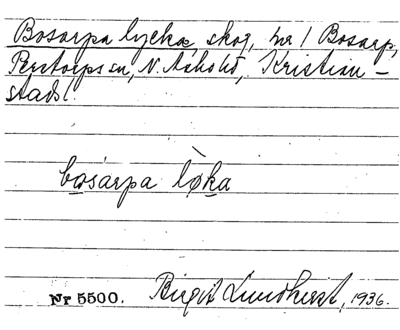 Bosarpa lycka, skog, nr 1 Bosarp,
Perstorps sn, N. Åsbo hd, Kristian-
stads l.
bosarpa lø̀ka
Nr 5500. Birgit Lundkvist, 1936.